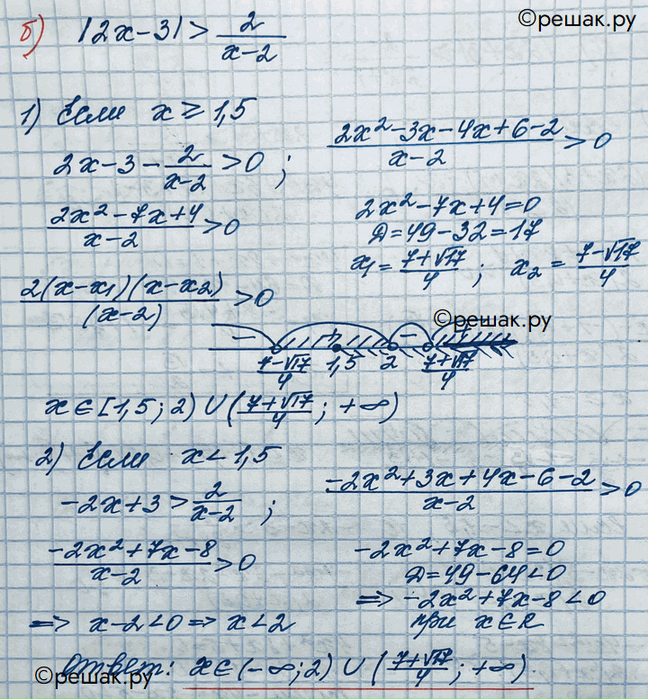 ©решак.ру
б) |2x-3| > 2/(x-2)
1) Если x ≥ 1,5
2x-3-2/(x-2) > 0 ;
(2x²-3x-4x+6-2)/(x-2) > 0
(2x²-7x+4)/(x-2) > 0
2x²-7x+4=0
Д=49-32=17
x₁=(7+√17)/4 ; x₂=(7-√17)/4
2(x-x₁)(x-x₂)/(x-2) > 0
©решак.ру
- + - +
(7-√17)/4 1,5 2 (7+√17)/4
x∈[1,5;2)∪((7+√17)/4;+∞)
2) Если x<1,5
-2x+3 > 2/(x-2) ;
(-2x²+3x+4x-6-2)/(x-2) > 0
(-2x²+7x-8)/(x-2) > 0
-2x²+7x-8=0
Д=49-64<0
=> -2x²+7x-8<0
при x∈R
=> x-2<0 => x<2
Ответ: x∈(-∞;2)∪((7+√17)/4;+∞).
©решак.ру